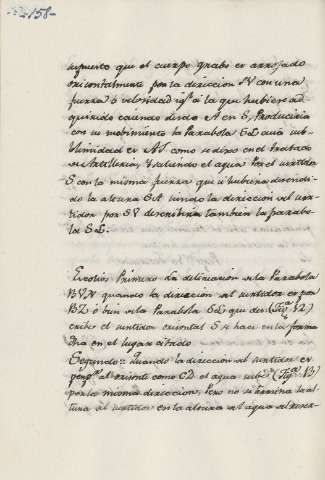 -158-
supuesto que el cuerpo grabe es arrojado
orizontalmente por la direccion SV con una
fuerza ó velosidad igl. á la que hubiere ad-
quirido caiendo desde A en S, Produciria
con su mobimiento la Parabola SL cuia sub-
limidad es AS como se dixo en el tratado
de Artilleria, Y saliendo el agua Por el surtidor
S con la misma fuerza que si hubiera desendi-
do la altura SA siendo la direccion del sur-
tidor por SV describira tambien la parabo-
la SL.
Escolio Primero La delineacion de la Parabola
BVN quando la direccion del surtidor es por
BZ ó bien de la Parabola SL que des (Figa. 12.)
cribe el surtidor orisontal S se hace en la forma
dha en el lugar citado
Segundo: Quando la direccion del surtidor es
al orisonte como CD el agua sube (Figa. 13)
por la misma direccion, Pero no se termina la al-
tura del surtidor en la altura del agua del reser-